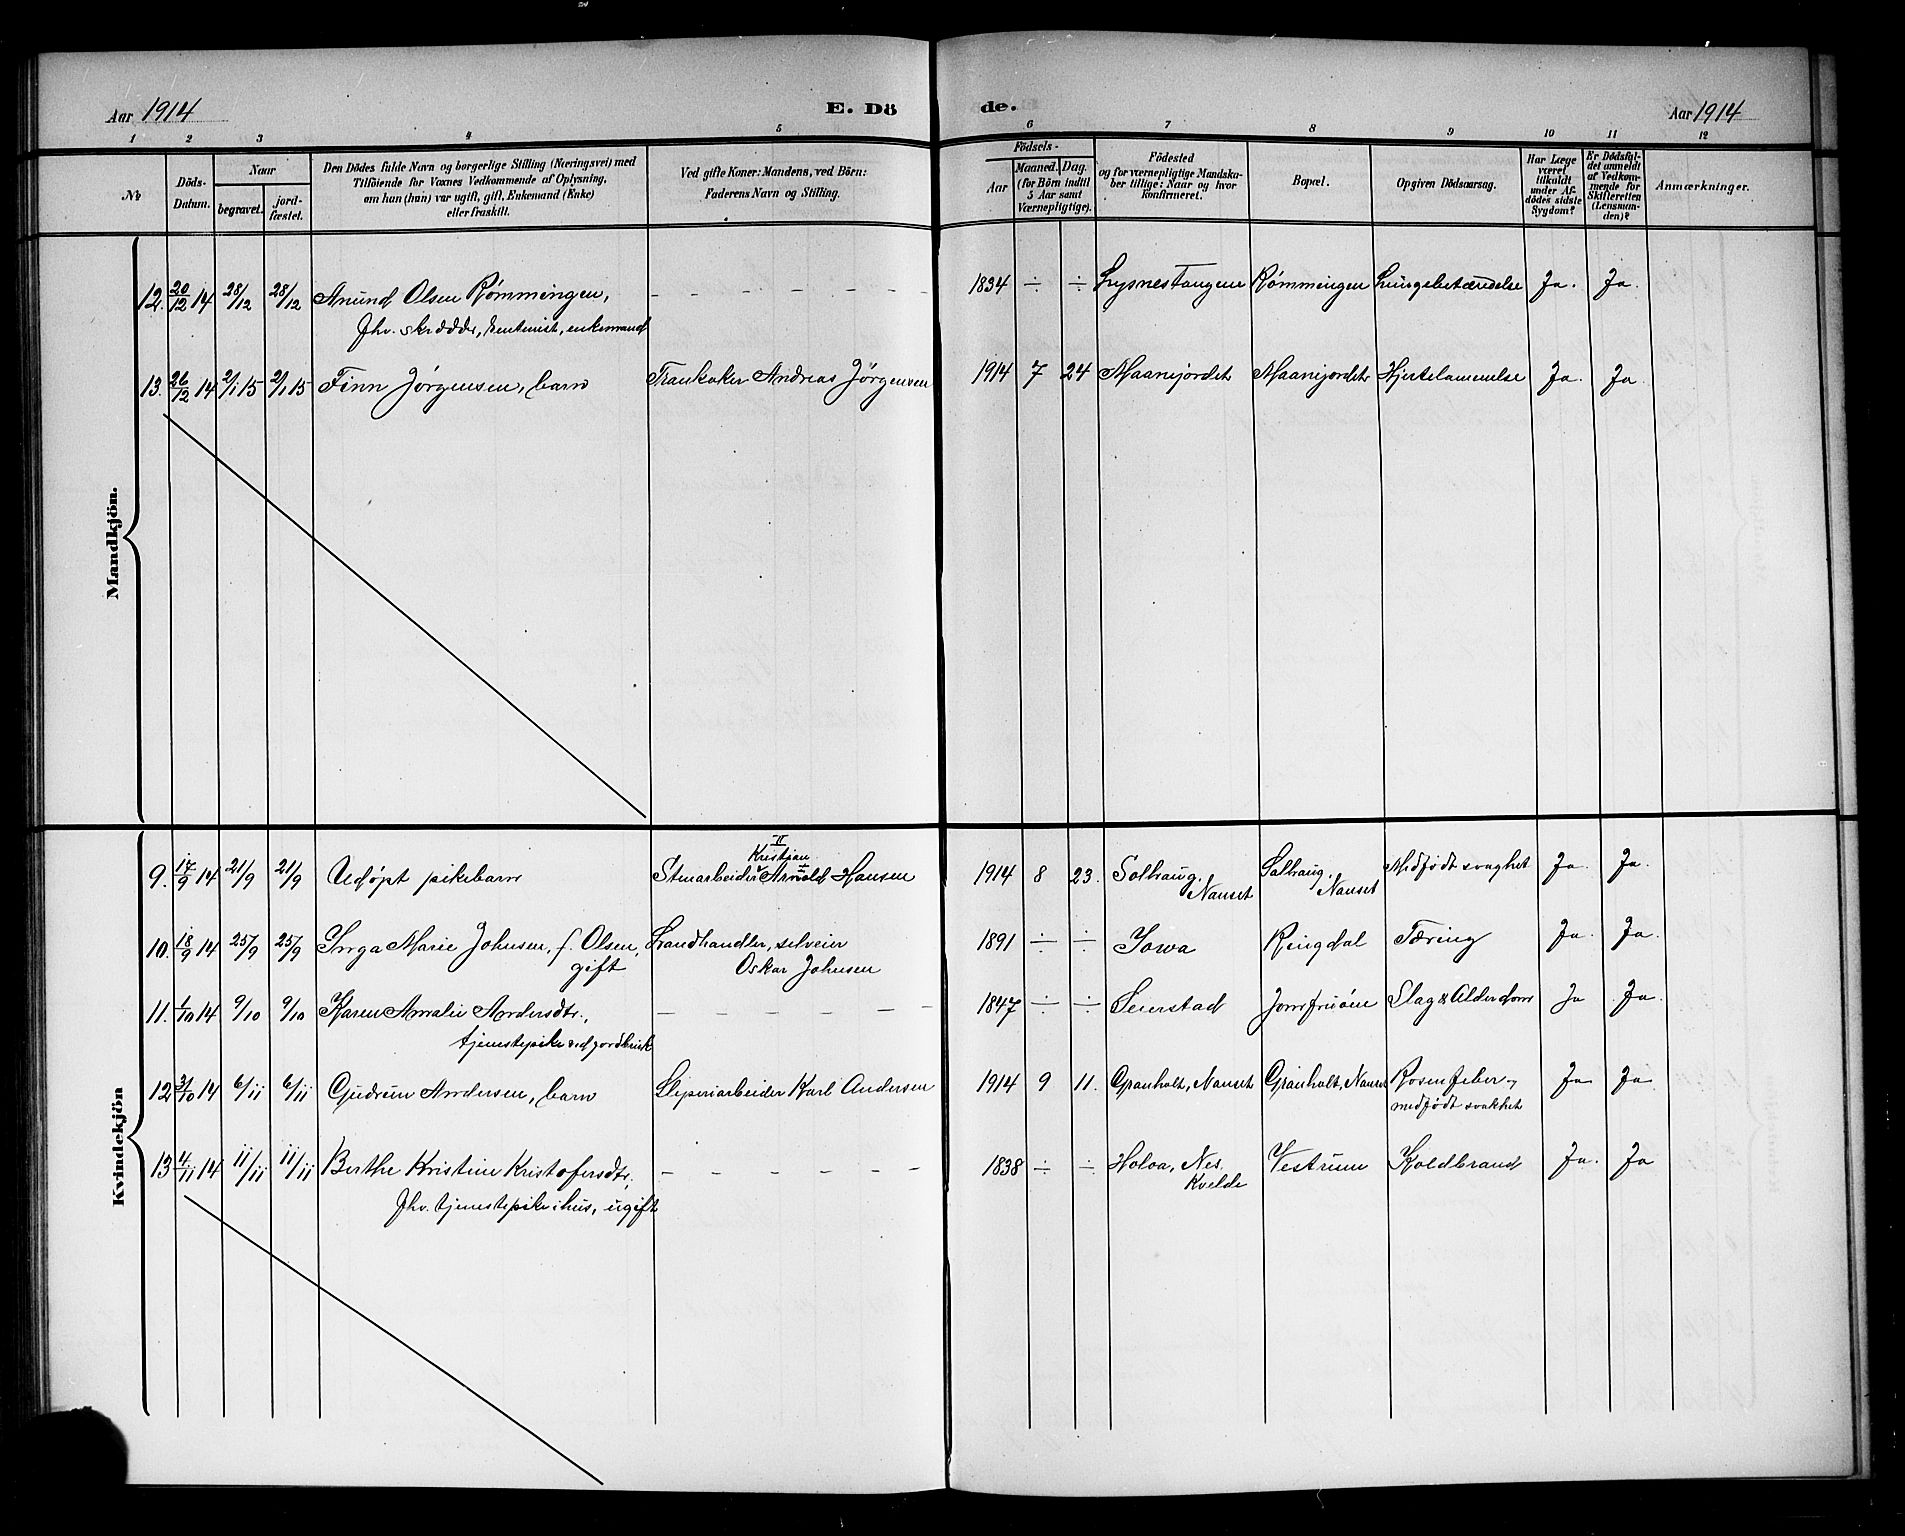 Aar 1914 E. Dö de. Aar 1914
1 2 3 4 5 6 7 8 9 10 11 12
№
Döds-
Datum.
Naar
begravet.
jord-
fæstet.
Den Dödes fulde Navn og borgerlige Stilling (Næringsvei) med
Tilföiende for Voxnes Vedkommende af Oplysning,
om han (hun) var ugift, gift, Enkemand (Enke)
eller fraskilt.
Ved gifte Koner: Mandens, ved Börn:
Faderens Navn og Stilling.
Födsels-
Aar
Maaned. Dag.
(for Börn indtil
5 Aar samt
Værnepligtige).
Födested
og for værnepligtige Mandska-
ber tillige: Naar og hvor
konfirmeret.
Bopæl.
Opgiven Dödsaarsag.
Har Læge
været
tilkaldt
under Af-
dödes sidste
Sygdom?
Er Dödsfal-
det anmeldt
af Vedkom-
mende for
Skifteretten
(Lensman-
den)?
Anmærkninger.
Mandkjön.
12. 20/12 14 28/12 28/12 Anund Olsen Rømmingen, – – – – – – 1834 ÷ ÷ Lysnestangen Rømmingen Lungebetændelse Ja. Ja.
Fhv. skrædder, rentenist, enkemand
13. 26/12 14 2/1 15 2/1 15 Finn Jørgensen, barn Trankoker Andreas Jørgensen 1914 7 24 Maanejordet Maanejordet Hjertelammelse Ja. Ja.
Kvindekjön
II
Kristian
9. 17/9 14 21/9 21/9 Udøpt pikebarn Stenarbeider Arnold Hansen 1914 8 23. Solhaug, Solhaug, Medfødt svaghet Ja. Ja.
Nanset Nanset
10. 18/9 14 25/9 25/9 Inga Marie Johnsen, f. Olsen, Landhandler, selveier 1891 ÷ ÷ Iowa Ringdal Tæring Ja. Ja.
gift Oskar Johnsen
11. 1/10 14 9/10 9/10 Karen Amalie Andersdtr., – – – – – – 1847 ÷ ÷ Seierstad Jomfruøen Slag & Alderdom Ja Ja.
tjenestepike ved jordbruk
12 31/10 14 6/11 6/11 Gudrun Andersen, barn Sliperiarbeider Karl Andersen 1914 9 11. Granholt, Nanset Granholt, Nanset Rosenfeber, Ja Ja
medfødt svakhet
13 4/11 14 11/11 11/11 Berthe Kristine Kristofersdtr., – – – – – – 1838 ÷ ÷ Holoa, Nes, Vestrum Koldbrand Ja. Ja
Kvelde
Fhv. tjenestepike i hus, ugift